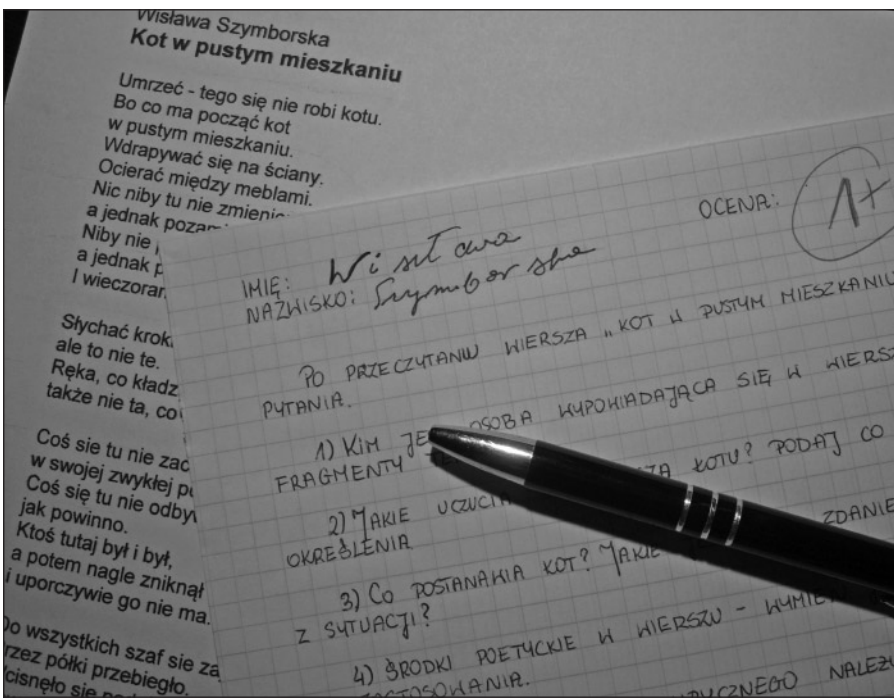 Wisława Szymborska
Kot w pustym mieszkaniu
Umrzeć - tego się nie robi kotu.
Bo co ma począć kot
w pustym mieszkaniu.
Wdrapywać się na ściany.
Ocierać między meblami.
Nic niby tu nie
a jednak
Niby nie
a jednak
I
Słychać
ale to nie te.
Ręka, co
także nie ta, co
Coś sie tu nie
w swojej zwykłej
Coś się tu nie
jak powinno.
Ktoś tutaj był i był,
a potem nagle zniknął
i uporczywie go nie ma.
wszystkich szaf sie
półki przebiegło.
OCENA: 1+
IMIĘ: Wisława
NAZWISKO: Szymborska
PO PRZECZYTANIU WIERSZA „KOT W PUSTYM MIESZKANIU
PYTANIA.
1) KIM OSOBA WYPOWIADAJĄCA SIĘ W
FRAGMENTY
2) JAKIE KOTU? PODAJ CO
OKREŚLENIA
3) CO POSTANAWIA KOT? JAKIE ZDANIE
Z SYTUACJI?
4) ŚRODKI POETYCKIE W WIERSZU -